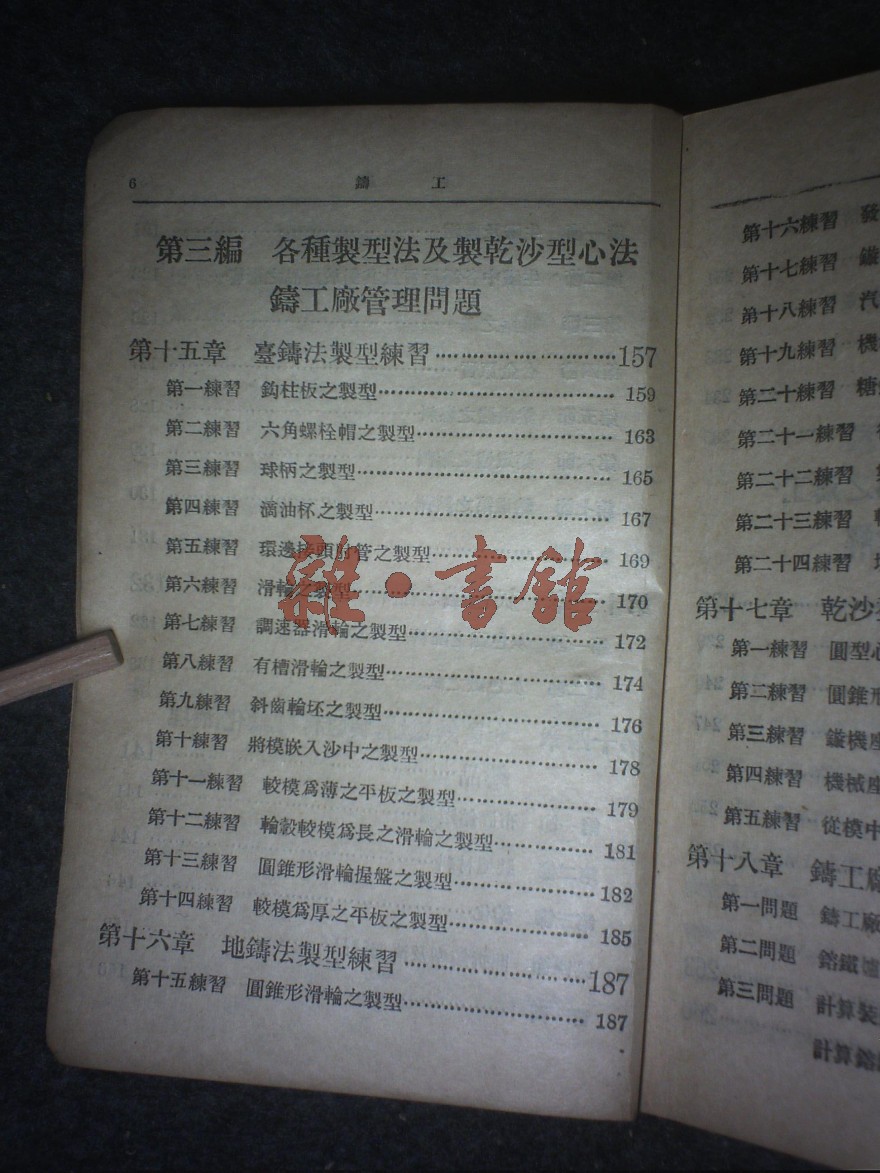 6 鑄 工
第三編 各種製型法及製乾沙型心法
鑄工廠管理問題
第十五章 臺鑄法製型練習 157
第一練習 鈎柱板之製型 159
第二練習 六角螺栓帽之製型 163
第三練習 球柄之製型 165
第四練習 滴油杯之製型 167
第五練習 環邊接頭肘管之製型 169
第六練習 滑輪之製型 170
第七練習 調速器滑輪之製型 172
第八練習 有槽滑輪之製型 174
第九練習 斜齒輪坯之製型 176
第十練習 將模嵌入沙中之製型 178
第十一練習 較模爲薄之平板之製型 179
第十二練習 輪轂較模爲長之滑輪之製型 181
第十三練習 圓錐形滑輪握盤之製型 182
第十四練習 較模爲厚之平板之製型 185
第十六章 地鑄法製型練習 187
第十五練習 圓錐形滑輪之製型 187
雜·書館
第十六練習 發
第十七練習 鏇
第十八練習 汽
第十九練習 機
第二十練習 糖
第二十一練習
第二十二練習
第二十三練習
第二十四練習
第十七章 乾沙型
第一練習 圓型心
第二練習 圓錐形
第三練習 鏇機座
第四練習 機械座
第五練習 從模中
第十八章 鑄工廠
第一問題 鑄工廠
第二問題 鎔鐵爐
第三問題 計算裝
計算鎔